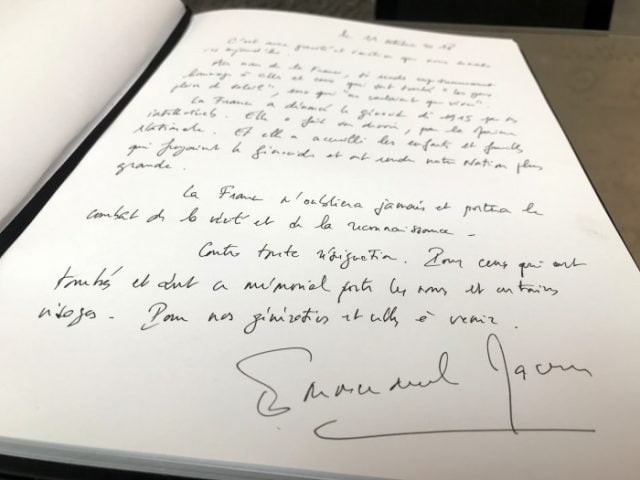 le 11 octobre 2018
C'est avec gravité et émotion que nous sommes
ici aujourd'hui.
Au nom de la France, je rends
hommage à celles et ceux qui sont tombés "les yeux
plein de soleil", ceux qui "ne voulaient que vivre".
La France a dénoncé le génocide dès 1915 par ses
intellectuels. Elle a fait son devoir, par la
Nationale. Et elle a accueilli les enfants et familles
qui fuyaient le génocide et ont rendu notre Nation plus
grande.
La France n'oubliera jamais et portera le
combat de la vérité et de la reconnaissance.
Contre toute résignation. Pour ceux qui sont
tombés et dont ce mémorial porte les noms et certains
visages. Pour nos générations et celles à venir.
Emmanuel Macron